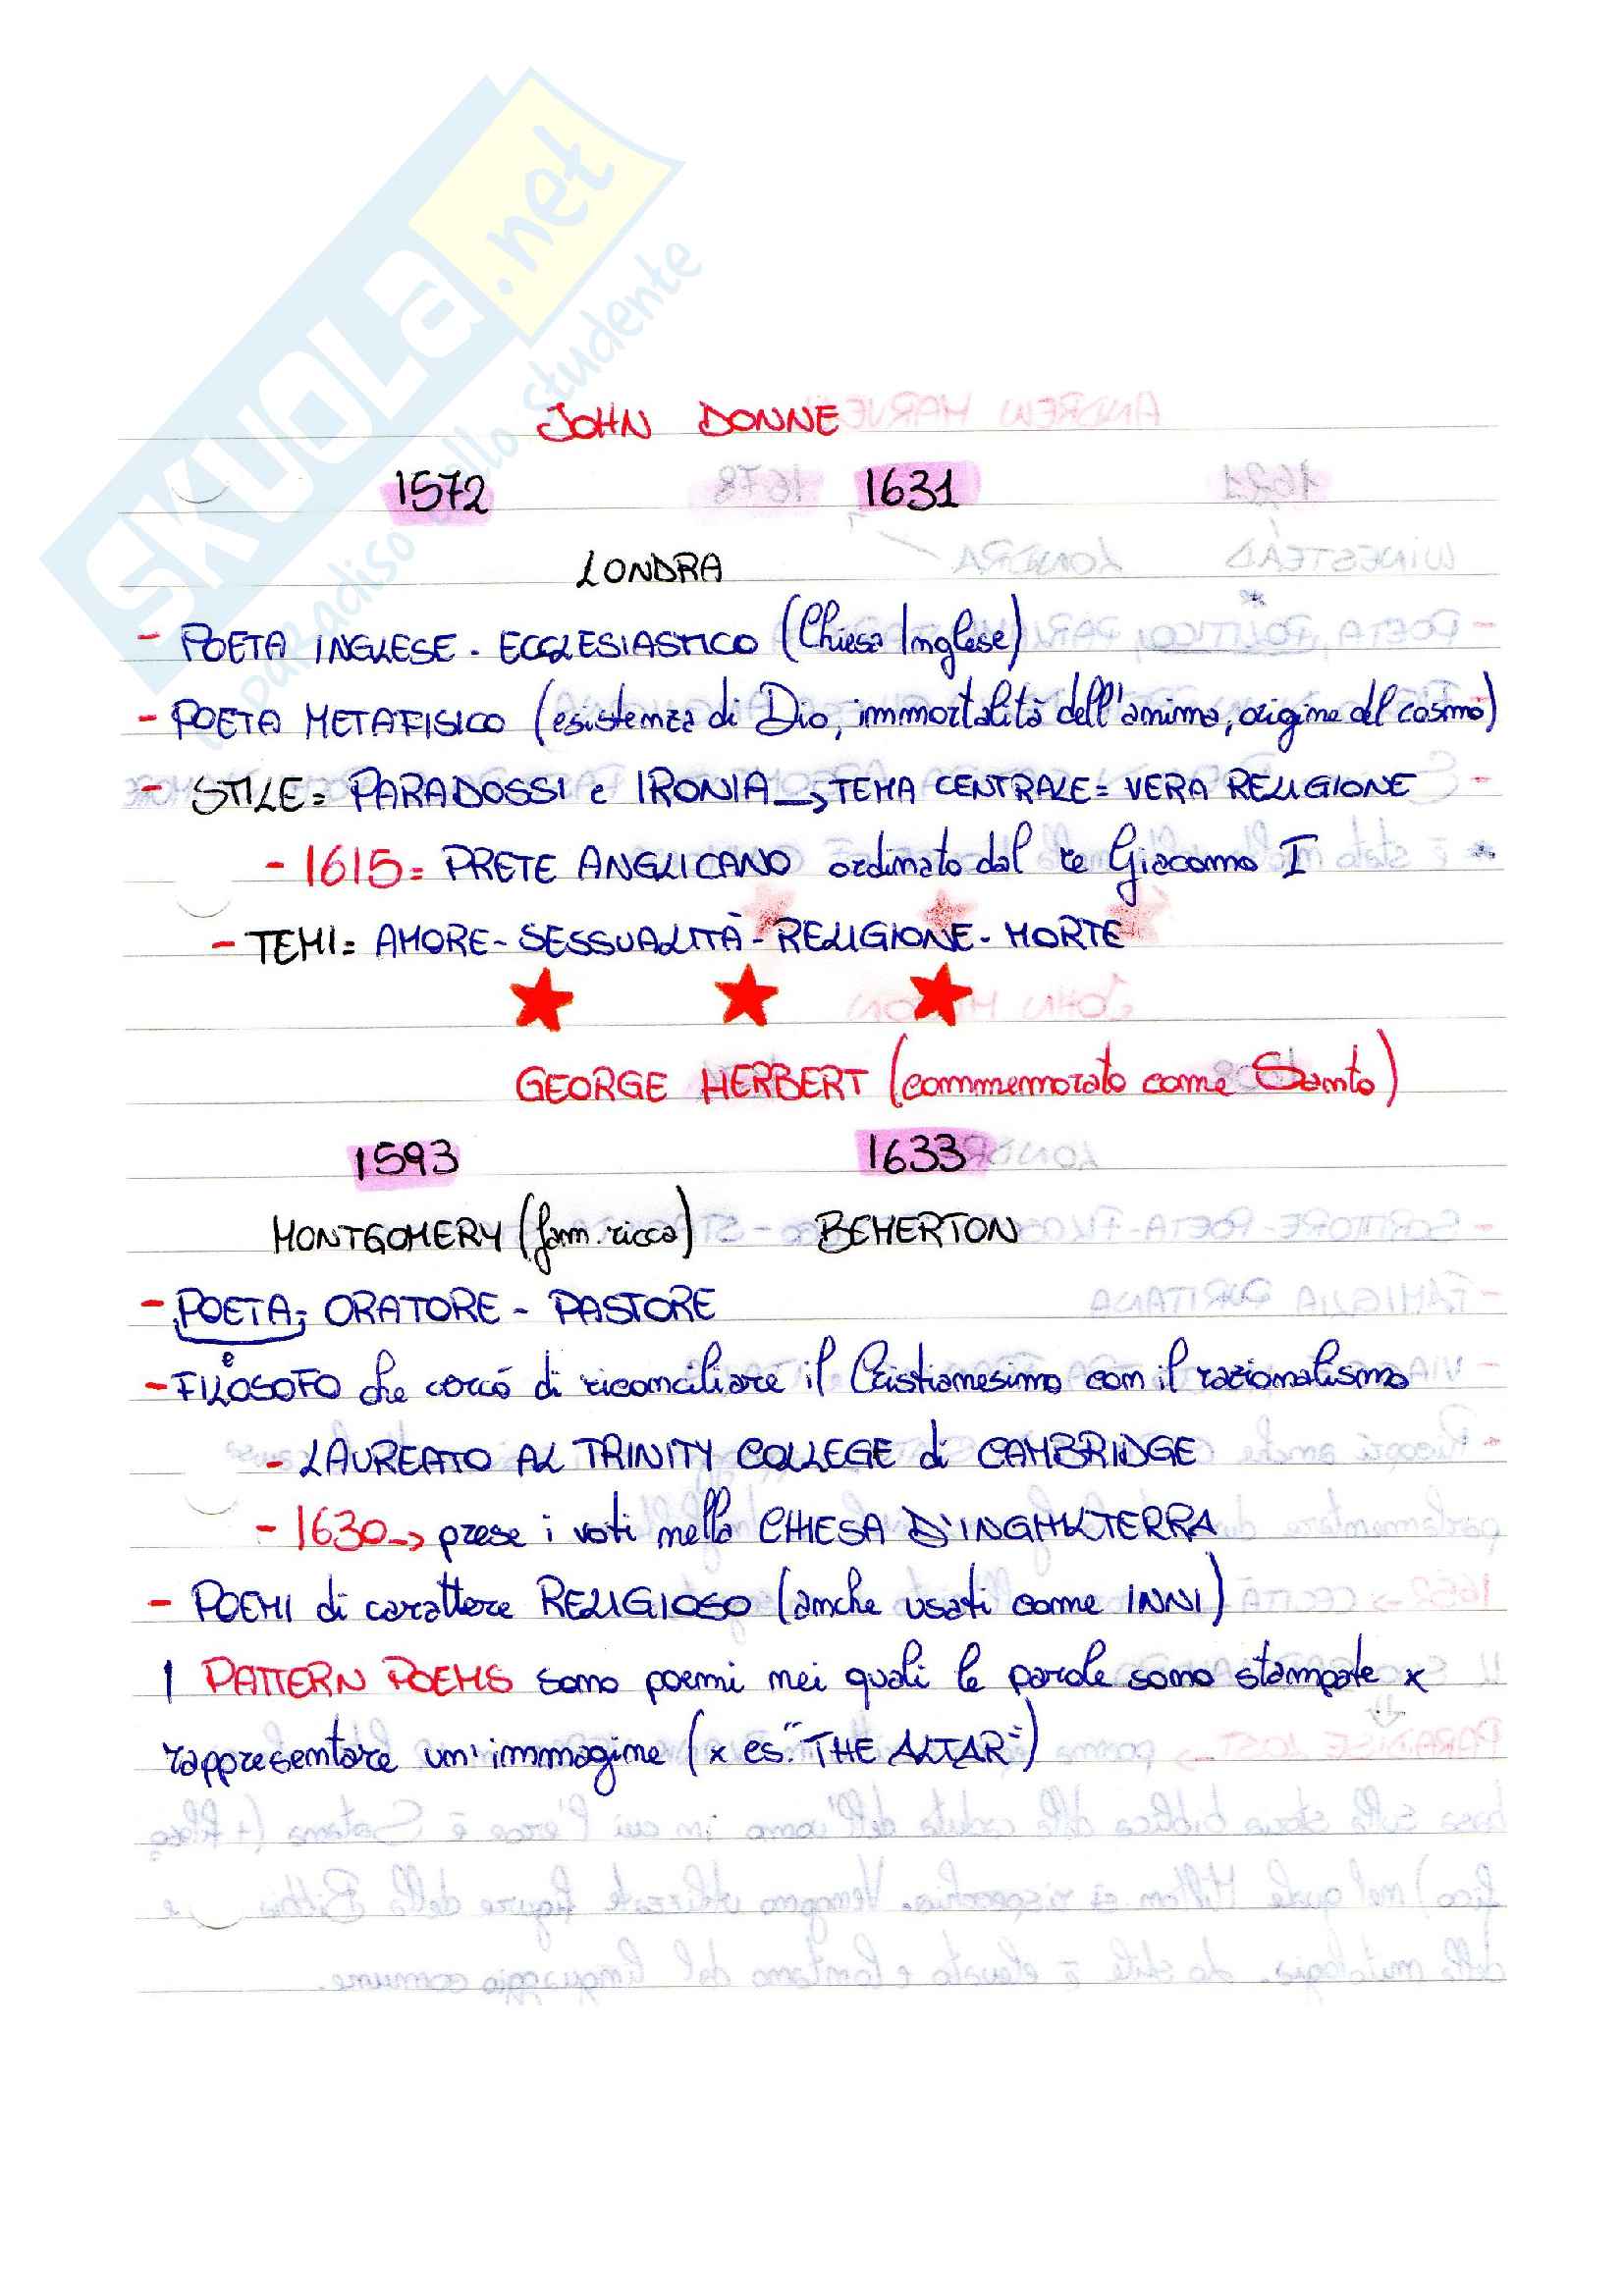 SKUOLA.net
il paradiso dello studente
JOHN DONNE
1572 1631
LONDRA
- POETA INGLESE - ECCLESIASTICO (Chiesa Inglese)
- POETA METAFISICO (esistenza di Dio, immortalità dell'anima, origine del cosmo)
- STILE = PARADOSSI e IRONIA → TEMA CENTRALE = VERA RELIGIONE
- 1615 = PRETE ANGLICANO ordinato dal re Giacomo I
- TEMI = AMORE - SESSUALITÀ - RELIGIONE - MORTE
GEORGE HERBERT (commemorato come Santo)
1593 1633
MONTGOMERY (fam. ricca) BEMERTON
- POETA - ORATORE - PASTORE
e
- FILOSOFO che cercò di riconciliare il Cristianesimo con il razionalismo
- LAUREATO AL TRINITY COLLEGE di CAMBRIDGE
- 1630 → prese i voti nella CHIESA D'INGHILTERRA
- POEMI di carattere RELIGIOSO (anche usati come INNI)
I PATTERN POEMS sono poemi nei quali le parole sono stampate x
rappresentare un'immagine (x es. "THE ALTAR")